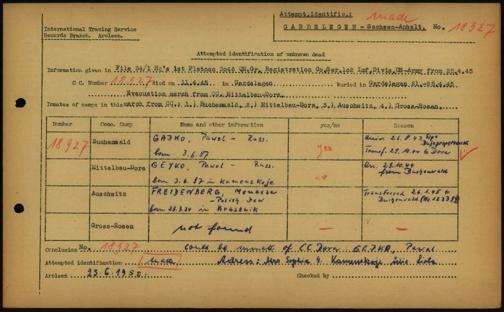 International Tracing Service
Records Branch. Arolsen.
Attempt.Identific.: made
GARDELEGEN - Sachsen-Anhalt. No. 18927
Attempted identification of unknown dead
Information given in File 84/1 Ho's 1st Platoon 601d QM.Gr. Registration Co.Ser.102 Inf.Divis.US-Army from 25.4.45
C C Number 18927 died on 11.4.45 in Gardelegen buried in Gardelegen 21.-25.4.45
Evacuation march from CC. Mittelbau-Dora.
Inmates of camps in this march from CC: 1.) Buchenwald, 2.) Mittelbau-Dora, 3.) Auschwitz, 4.) Gross-Rosen.
Number Conc. Camp Name and other information yes/no Reason
18927 Buchenwald GAJKO, Pawel - Russ.
born 3.6.87 yes
Transf. 25.10.44 to Dora
Mittelbau-Dora GEYKO, Pawel - Russ.
born 3.6.87 in Kamenskoje - Arr. 25.10.44
from Buchenwald
Auschwitz FREIDENBERG, Monasse
- Polish Jew
born in Krasnik Transferred 26.1.45 to
Buchenwald
Gross-Rosen not found - -
Conclusion No. 18927 could be inmate of C.C. Dora GEJKO, Pawel
Attempted identification made Adress:
Arolsen 23.6.1950. Checked by